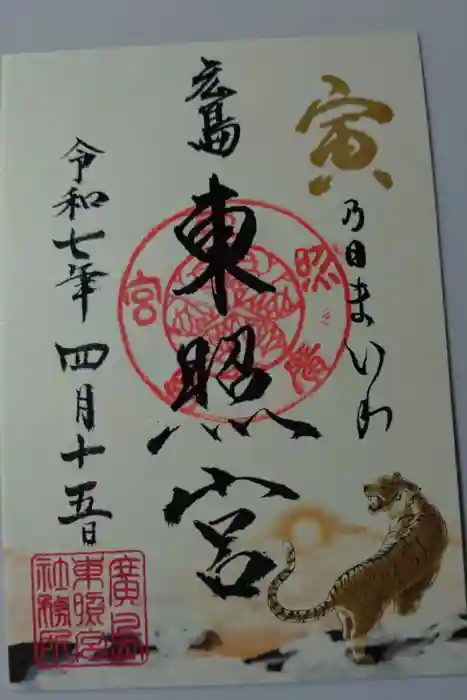 寅
乃日まいり
広島
東照宮
令和七年四月十五日
廣島
東照宮
社務所